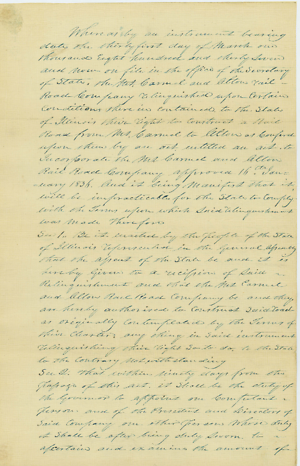 Whereas by an instrument bearing
duty the thirty first day of March one
thousand eight hundred and thirty seven
and now on file in the office of the Secretary
of State, the Mt Carmel and Alton Rail
Road Company relinquished upon certain
conditions therein contained to the State
of Illinois their right to construct a Rail
Road from Mt Carmel to Alton as confered
upon them by an act entitled an act to
Incorporate the Mt Carmel and Alton
Rail Road Company approved 16th Jan
uary 1836. And it being Manifest that it
will be impracticable for the State to comply
with the terms upon which said relinquishment
was made Therefore
Sec 1. Be it enacted by the people of the State
of Illinois represented in the General Assembly
that the assent of the State be and it is
hereby given to a recision of said
Relinquishment and that the Mt Carmel
and Alton Rail Road Company be and they
are hereby authorised to construct said road
as originally contemplated by the terms of
their Charter, any thing in said instrument
relinquishing their right to do so to the State
to the contrary notwithstanding
Sec 2. That within ninety days from the
passage of this act, it shall be the duty of
the Governor to appoint one competant
person and of the President and Directors of
said Company one other person whose duty
it shall be after being duly sworn to
ascertain and examine the amount of